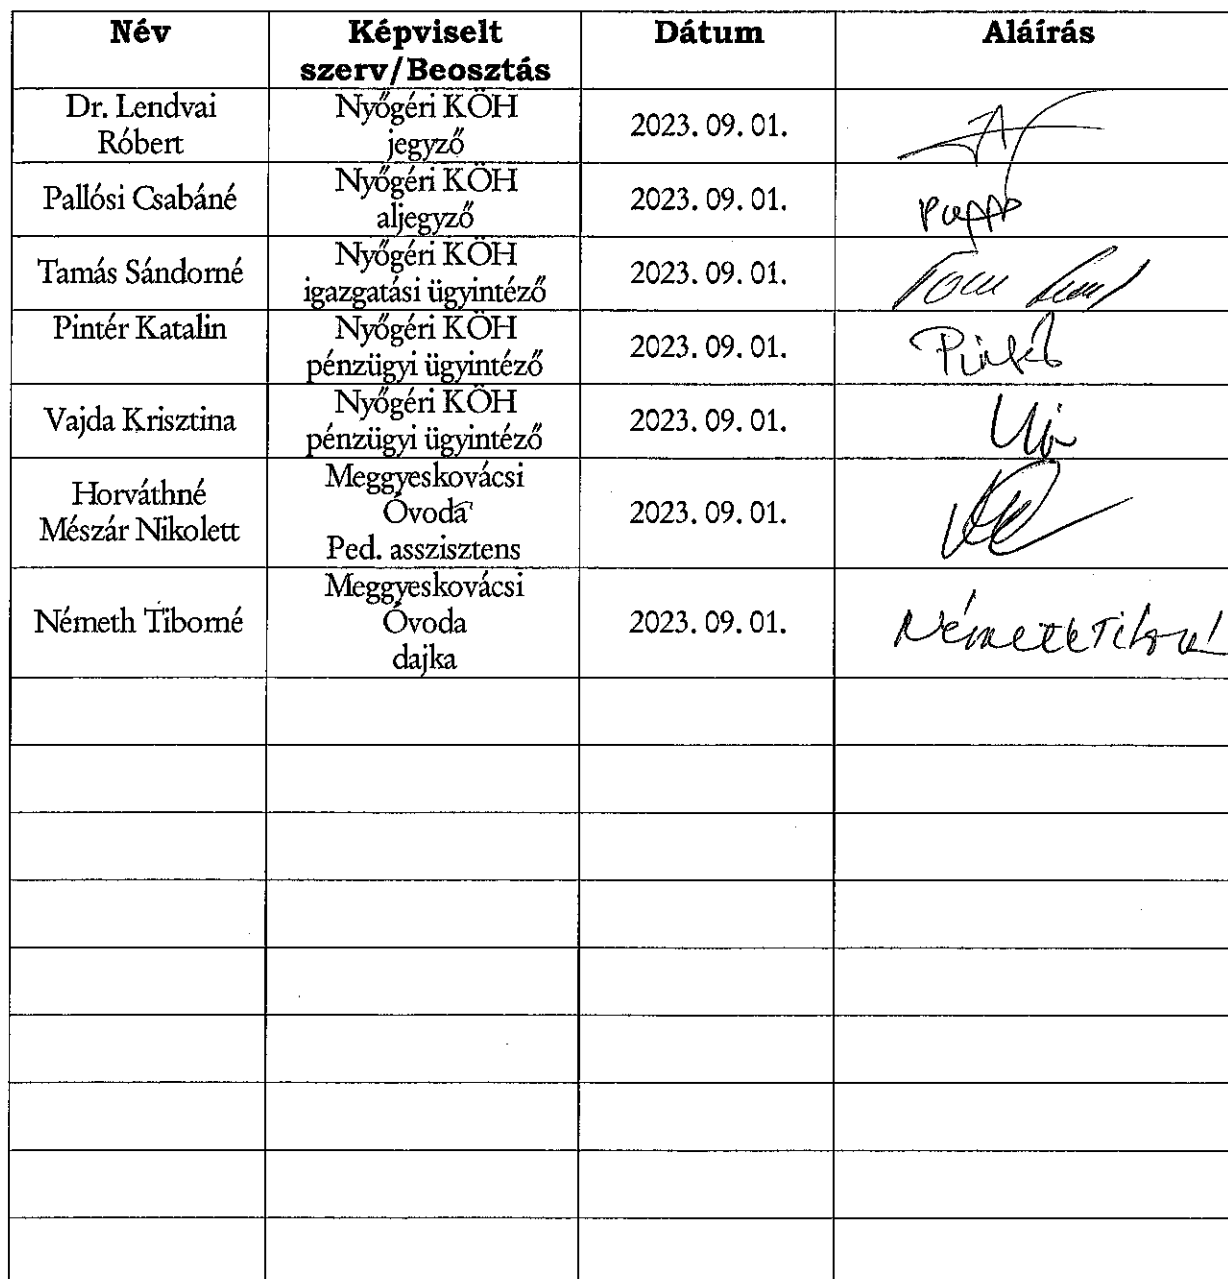 Név
Képviselt
szerv/Beosztás
Dátum
Aláírás
Dr. Lendvai
Róbert
Nyőgéri KÖH
jegyző
2023. 09. 01.
Pallósi Csabáné
Nyőgéri KÖH
aljegyző
2023. 09. 01.
Tamás Sándorné
Nyőgéri KÖH
igazgatási ügyintéző
2023. 09. 01.
Pintér Katalin
Nyőgéri KÖH
pénzügyi ügyintéző
2023. 09. 01.
Vajda Krisztina
Nyőgéri KÖH
pénzügyi ügyintéző
2023. 09. 01.
Horváthné
Mészár Nikolett
Meggyeskovácsi
Óvoda
Ped. asszisztens
2023. 09. 01.
Németh Tiborné
Meggyeskovácsi
Óvoda
dajka
2023. 09. 01.
Németh Tiborné